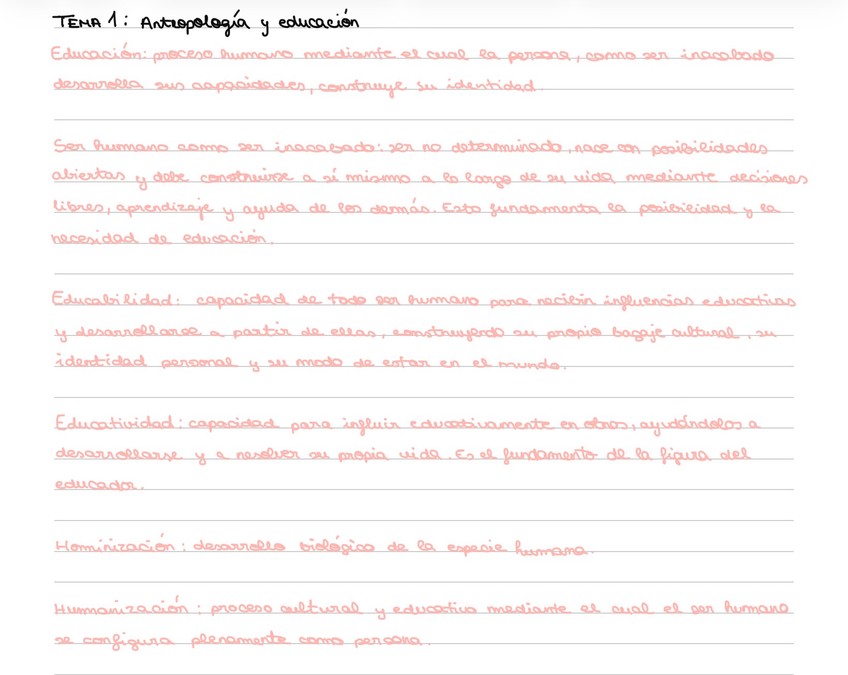 TEMA 1: Antropología y educación
Educación: proceso humano mediante el cual la persona, como ser inacabado
desarrolla sus capacidades, construye su identidad.
Ser humano como ser inacabado: ser no determinado, nace con posibilidades
abiertas y debe construirse a sí mismo a lo largo de su vida mediante decisiones
libres, aprendizaje y ayuda de los demás. Esto fundamenta la posibilidad y la
necesidad de educación.
Educabilidad: capacidad de todo ser humano para recibir influencias educativas
y desarrollarse a partir de ellas, construyendo su propio bagaje cultural, su
identidad personal y su modo de estar en el mundo.
Educatividad: capacidad para influir educativamente en otros, ayudándolos a
desarrollarse y a resolver su propia vida. Es el fundamento de la figura del
educador.
Hominización: desarrollo biológico de la especie humana.
Humanización: proceso cultural y educativo mediante el cual el ser humano
se configura plenamente como persona.